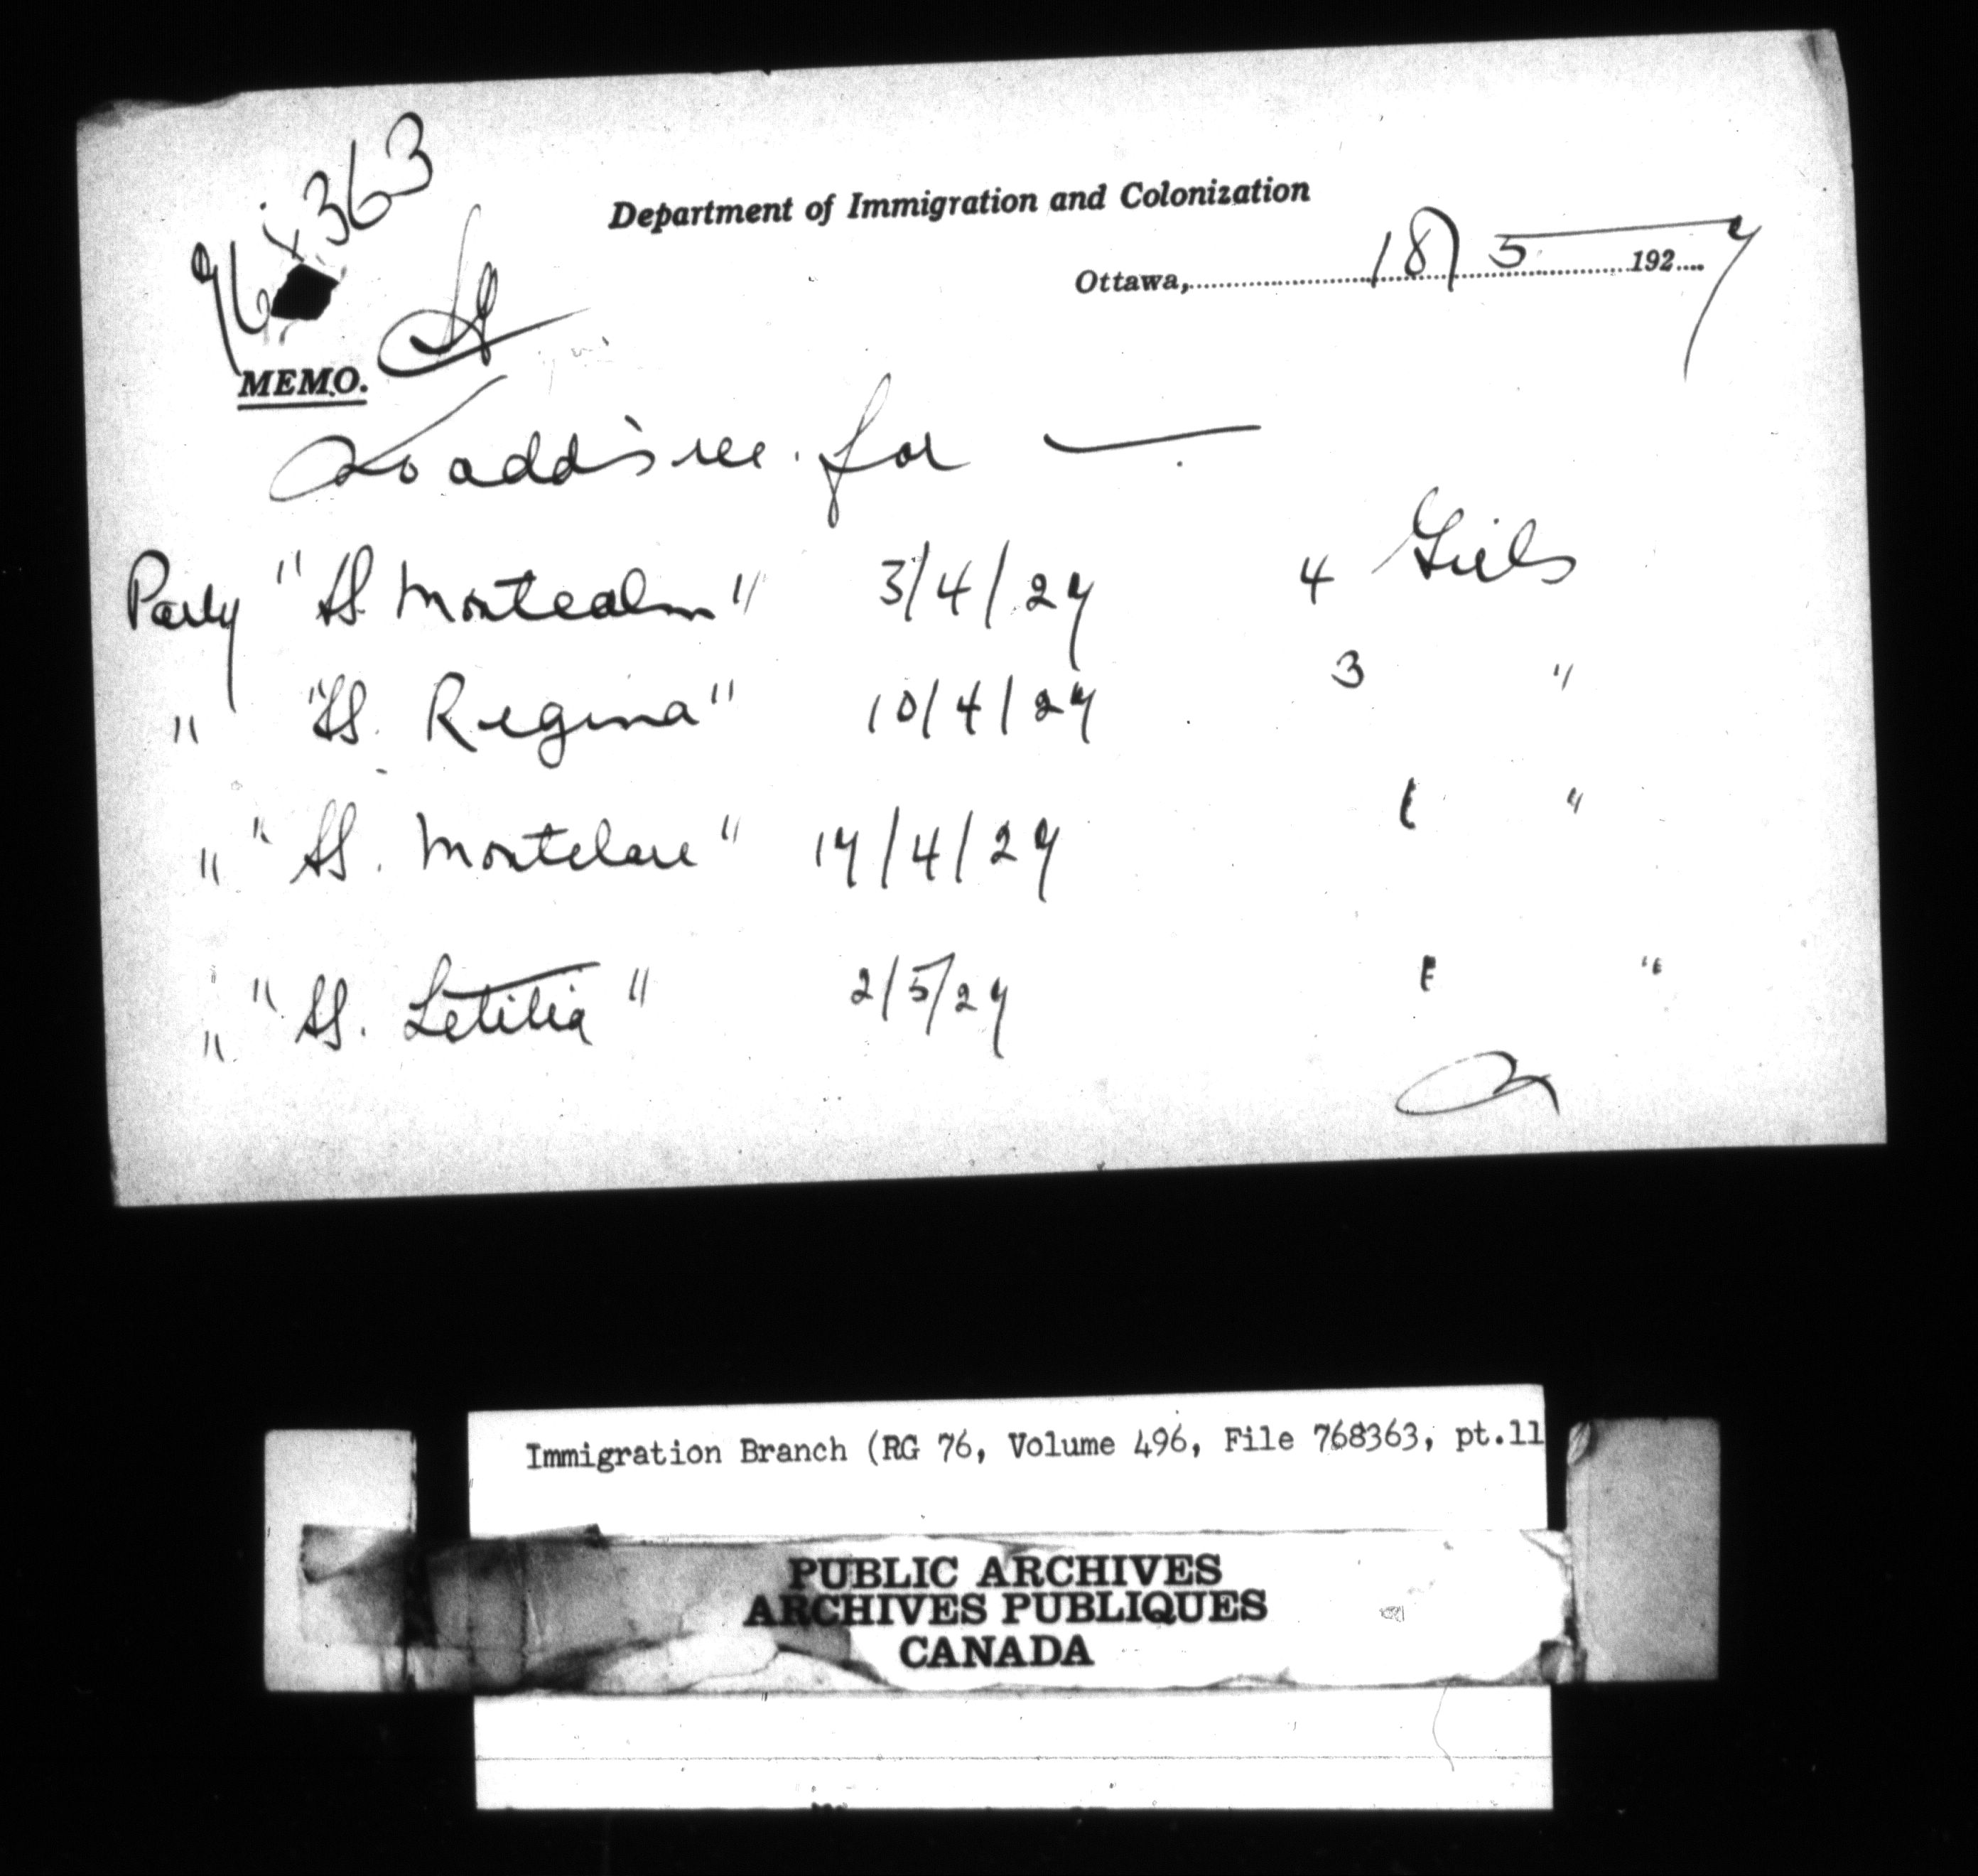 768363
Department of Immigration and Colonization
Ottawa, 18/5 1927
MEMO.
No add's rec. for —
Party "SS. Montcalm" 3/4/27 4 Girls
" "SS. Regina" 10/4/27 3 "
" "SS. Montclare" 17/4/27 1 "
" "SS. Letitia" 2/5/27 1 "
Immigration Branch (RG 76, Volume 496, File 768363, pt.11
PUBLIC ARCHIVES
ARCHIVES PUBLIQUES
CANADA